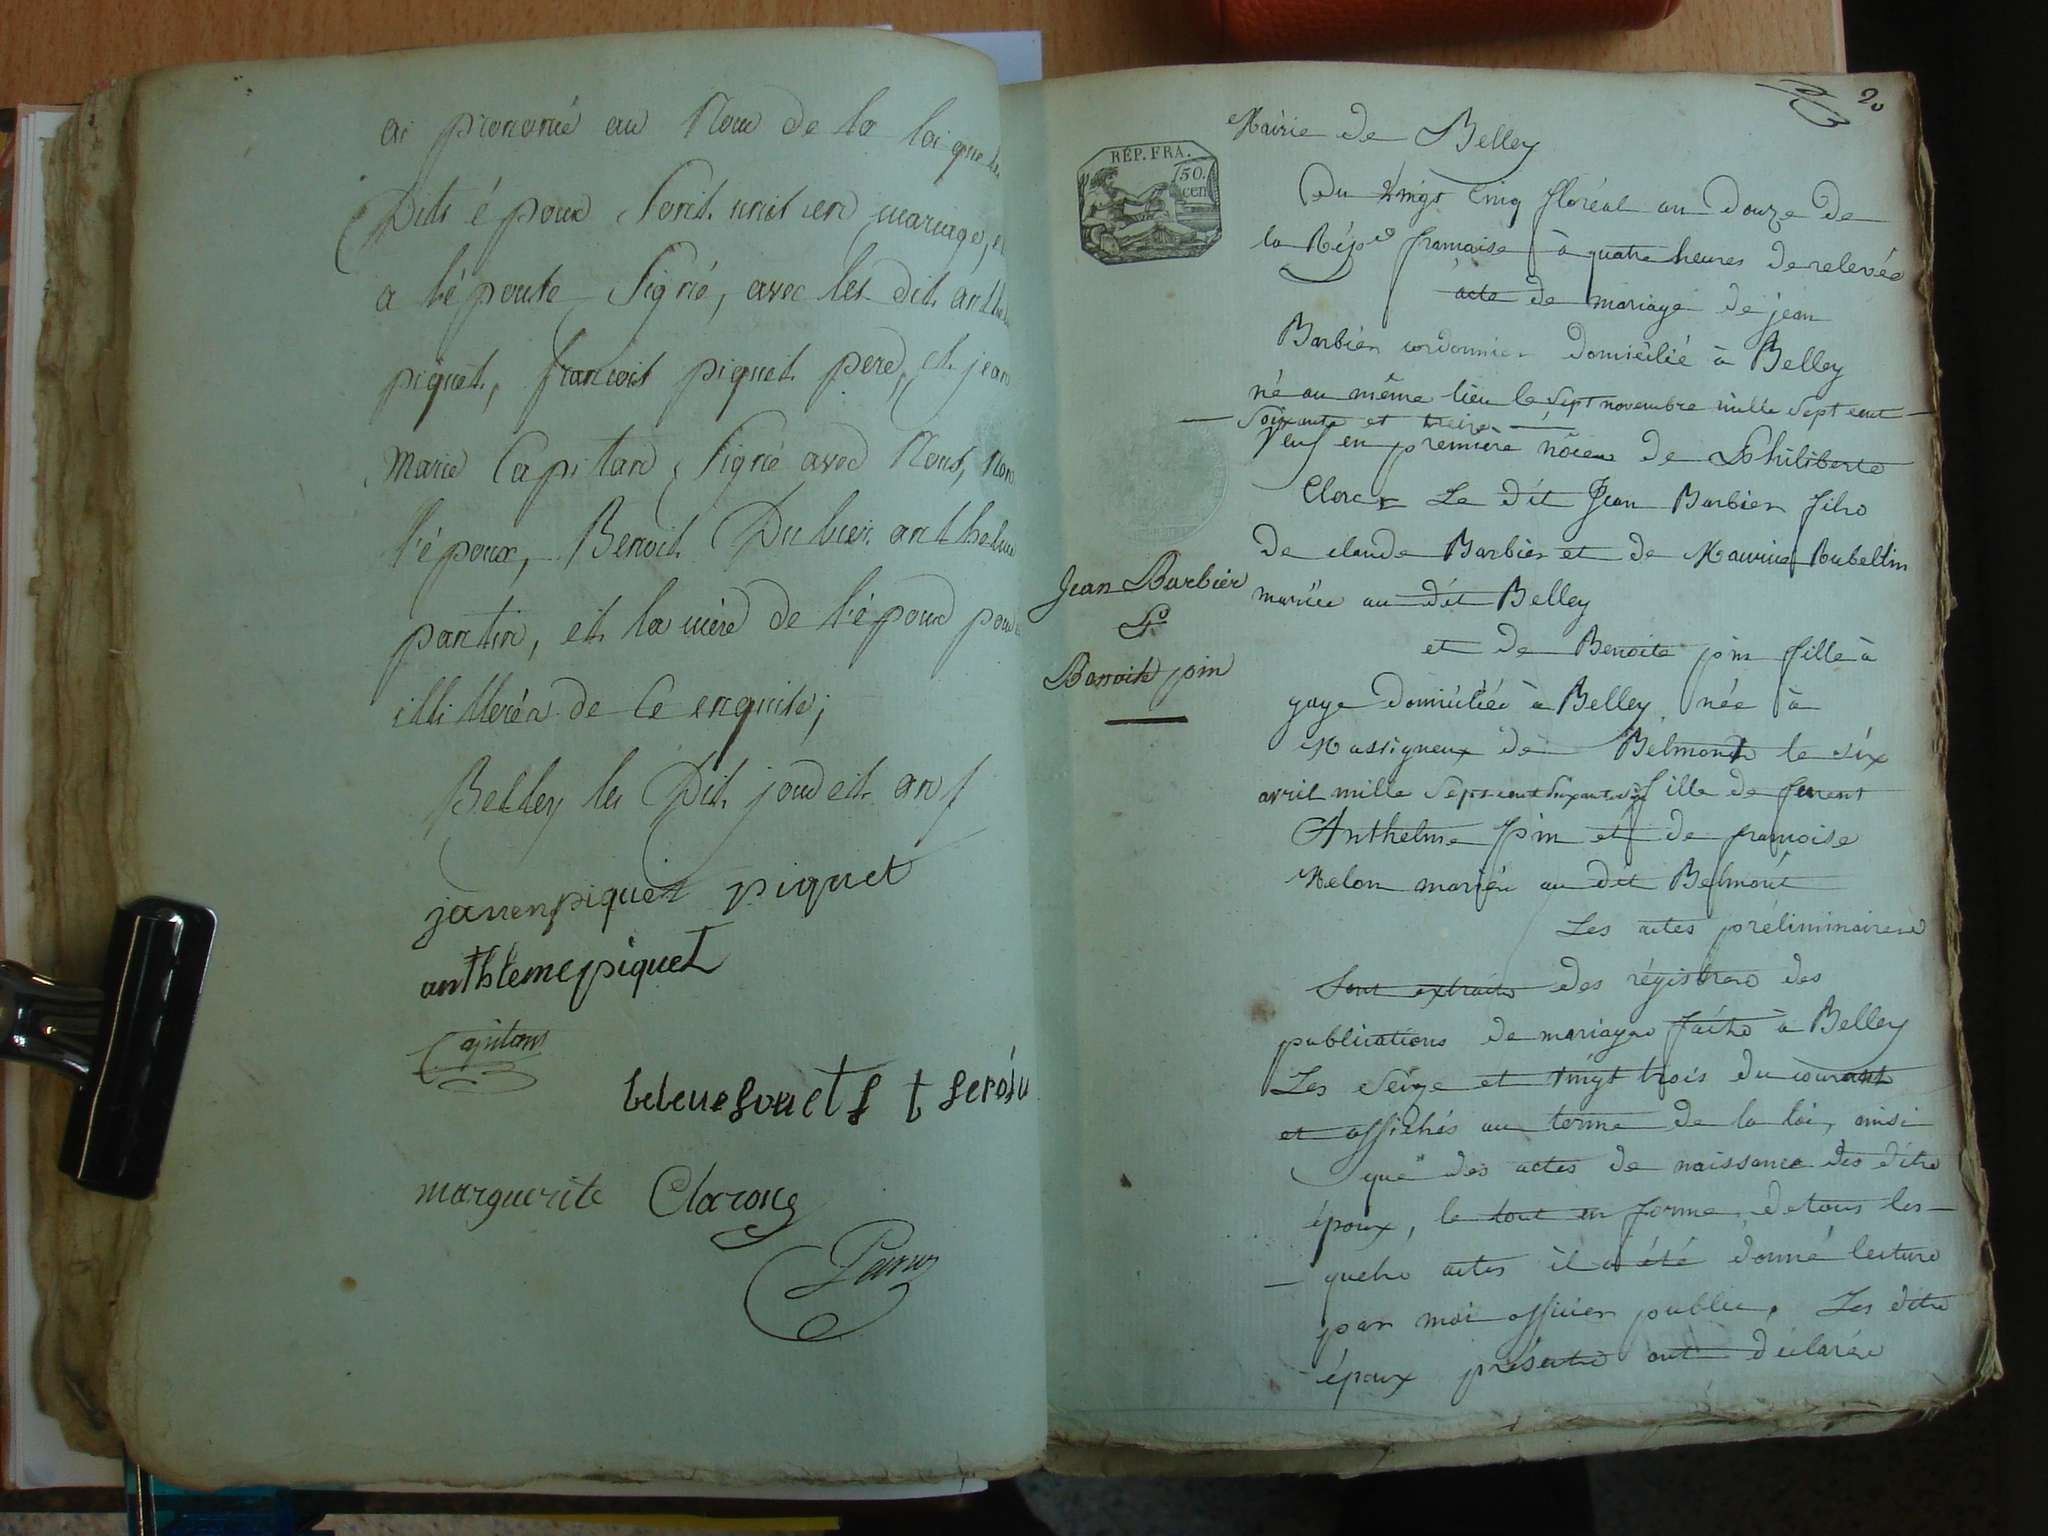 ai prononcé au Nom de la loi que les
Dits époux sont unit en mariage, et
a l'épouse signé, avec les dit anthelme
piquet, francois piquet pere, et jean
marie Capitan, signé avec Nous, Non
l'époux, Benoit Dubier anthelme
pantin, et la mère de l'époux pour
illitterés de ce enquits;
Belley les Dit jour et an /
piquet piquet
anthleme piquet
Capitan
marguerite Claron
REP. FRA.
50. cen
20
Mairie de Belley
Du vingt Cinq floréal an douze de
la Répe francaise à quatre heures de relevée
acte de mariage de jean
Barbier cordonnier domicilié à Belley
né au même lieu le sept novembre mille sept cent
soixante et treize
veuf en première nôces de Philiberte
Clerc Le dit Jean Barbier fils
de claude Barbier et de Maurice Rubellin
mariée au dit Belley
et de Benoite join fille à
gage domiciliée à Belley née à
Massigneux de Belmont le six
avril mille sept cent fille de feu
Anthelme join et de francoise
Melon mariés au dit Belmont
Les actes préliminaires
Sont extraits des régistres des
publications de mariages faites à Belley
Les Seize et vingt trois du courant
et affichés au terme de la loi, ainsi
que des actes de naissance des dits
époux, le tout en forme, de tous les
quels actes il a été donné lecture
par moi officier public. Les dits
époux présents ont déclarés
Jean Barbier
&
Benoite join